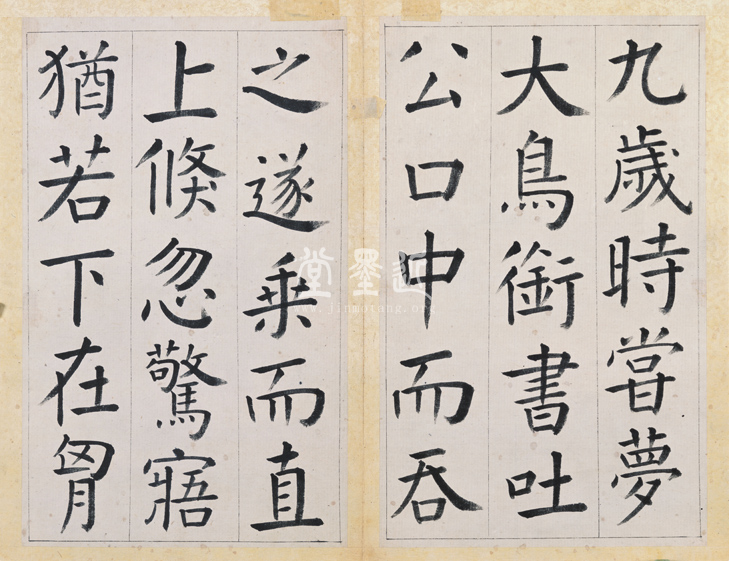 九歲時嘗夢
大鳥銜書吐
公口中而吞
之遂乗而直
上倐忽驚寤
猶若下在胷
近墨堂
www.jinmotang.org